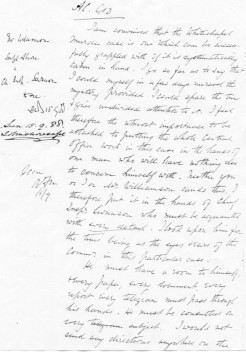 A.C. CID
I am convinced that the Whitechapel
Murder case is one which can be success-
fully grappled with if it is systematically
taken in hand. I go so far as to say that
I could myself in a few days unravel the
mystery provided I could spare the time
& give undivided attention to it. I feel
therefore the utmost importance to be
attached to putting the whole Central
Office work in this case in the hands of
one man who will have nothing else
to concern himself with. Neither you
or I or Mr Williamson can do this, I
therefore put it in the hands of Chief
Inspr Swanson who must be acquainted
with every detail. I look upon him for
the time being as the eyes & ears of the
Commr in this particular case.
He must have a room to himself,
& every paper, every document, every
report every telegram must pass through
his hands. He must be consulted on
every subject. I would not
send any directions anywhere on the
Mr Williamson
Supt
Ch. Insp. Swanson
to see
15.9.88